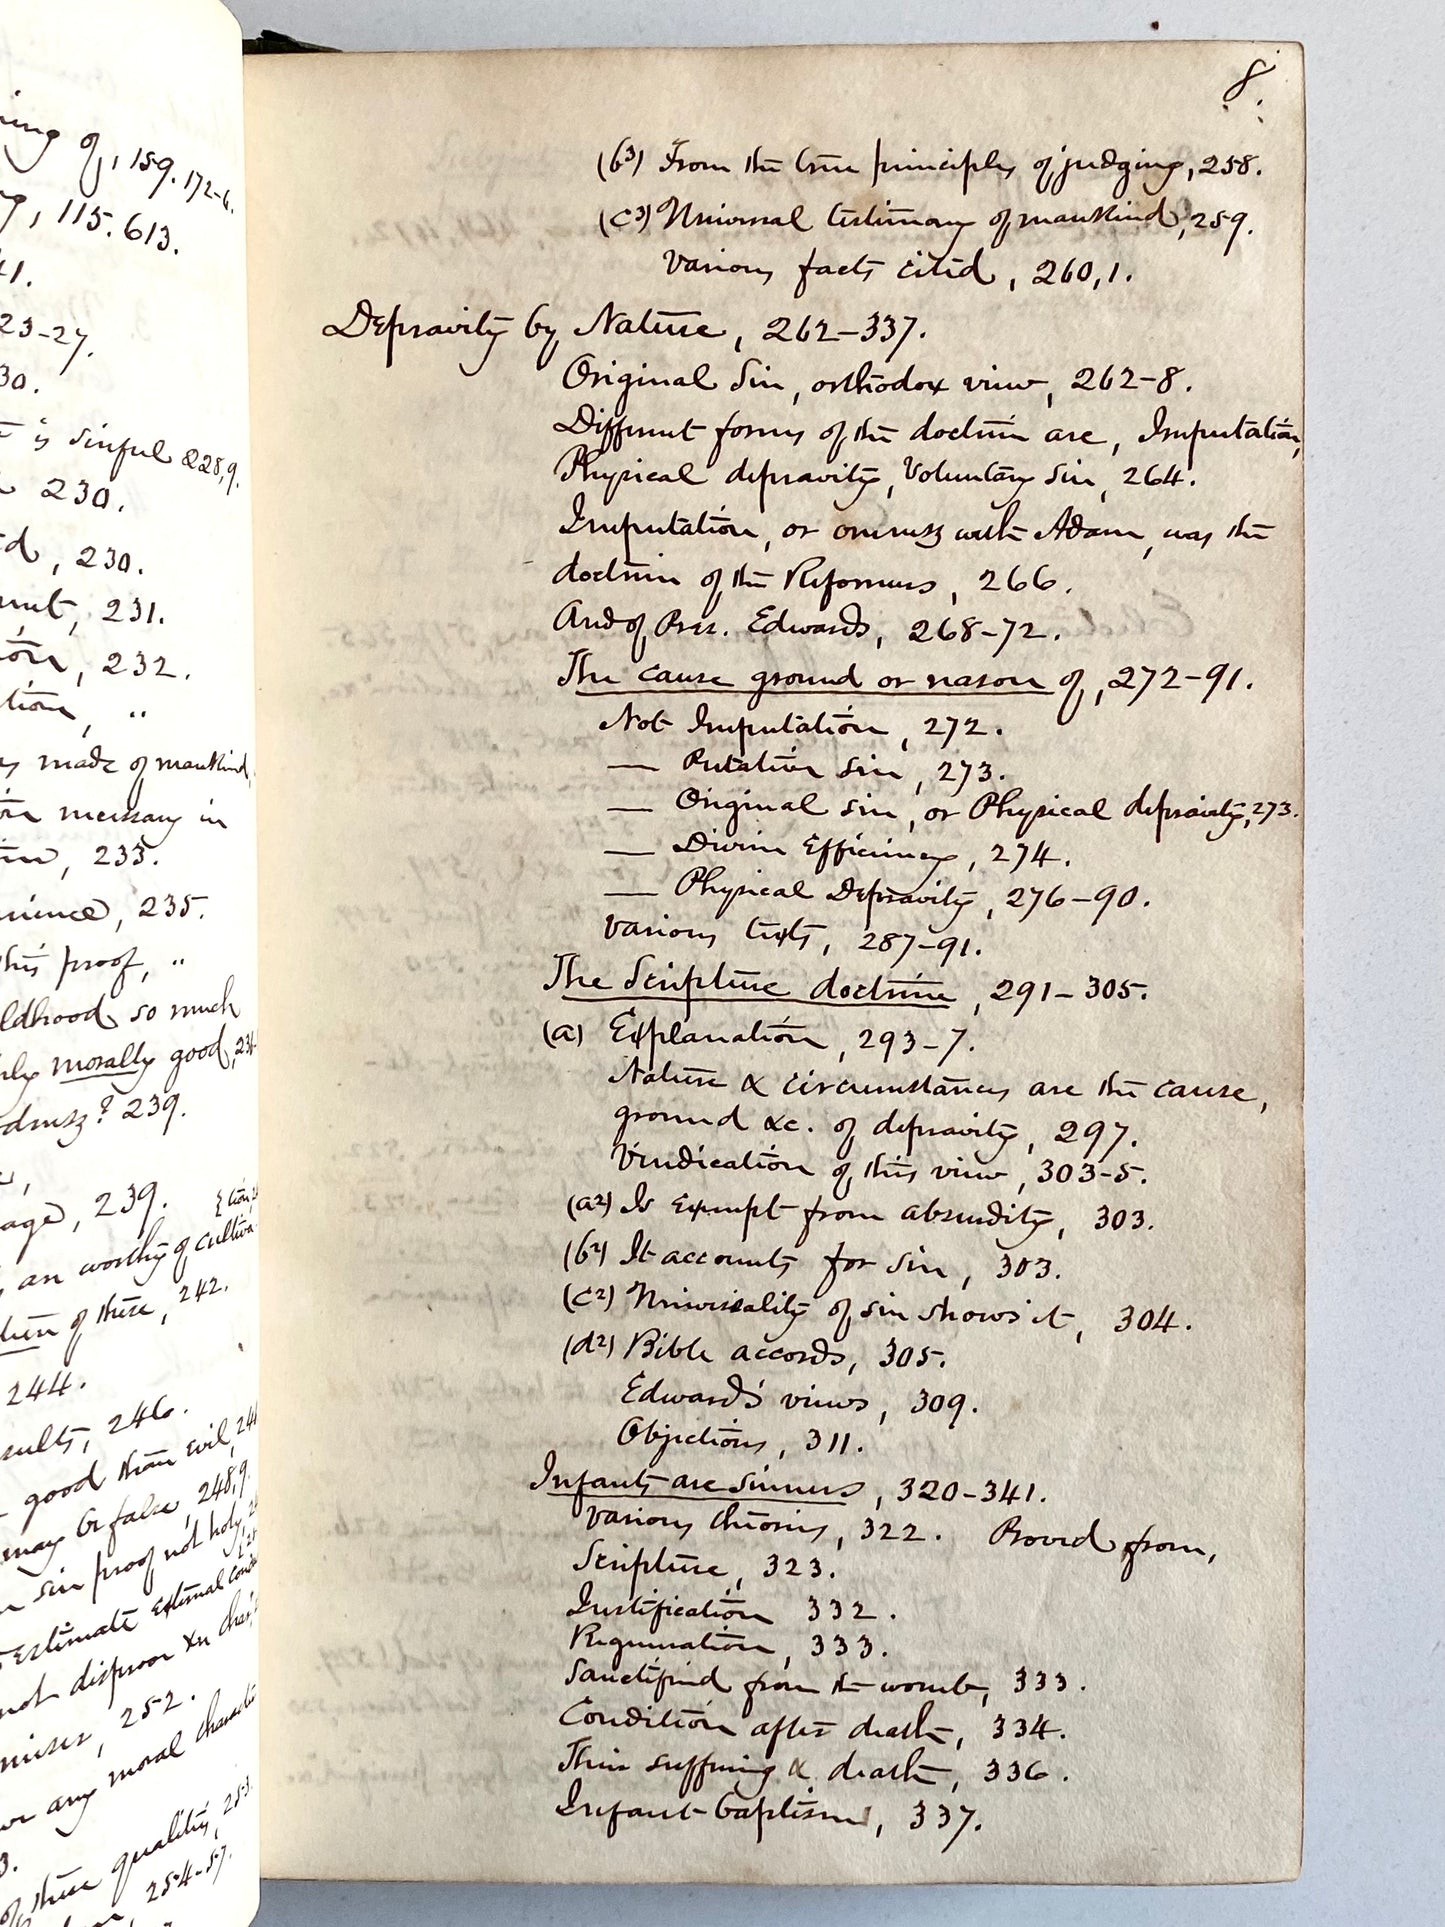 ing of, 159. 172-6.
, 115. 613.
41.
23-27.
30.
is sinful 228,9.
230.
d, 230.
ent, 231.
ion, 232.
tion, "
made of mankind,
necessary in
, 233.
nience, 235.
this proof, "
ldhood so much
ly morally good, 234-
dness? 239.
age, 239.
an worthy of cultiva-
of these, 242.
244.
sults, 246.
good than evil, 24
may be false, 248,9.
sin proof not holy,
estimate external cond
not disprove Xn char
miser, 252.
or any moral characte
3.
of these qualities, 253.
254-57.
8.
(b3) From the true principles of judging, 258.
(c3) Universal testimony of mankind, 259.
Various facts cited, 260,1.
Depravity by Nature, 262-337.
Original Sin, orthodox view, 262-8.
Different forms of the doctrine are, Imputation,
Physical depravity, Voluntary Sin, 264.
Imputation, or oneness with Adam, was the
doctrine of the Reformers, 266.
And of Pres. Edwards, 268-72.
The cause ground or reason of, 272-91.
Not Imputation, 272.
— Putative sin, 273.
— Original sin, or Physical depravity, 273.
— Divine Efficiency, 274.
— Physical Depravity, 276-90.
Various texts, 287-91.
The Scripture doctrine, 291-305.
(a) Explanation, 293-7.
Nature & circumstances are the cause,
ground &c. of depravity, 297.
Vindication of this view, 303-5.
(a2) Is exempt from absurdity, 303.
(b2) It accounts for sin, 303.
(c2) Universality of sin shows it, 304.
(d2) Bible accords, 305.
Edwards' views, 309.
Objections, 311.
Infants are sinners, 320-341.
Various theories, 322. Proved from,
Scripture, 323.
Justification 332.
Regeneration, 333.
Sanctified from the womb, 333.
Condition after death, 334.
Their suffering & death, 336.
Infant baptism, 337.